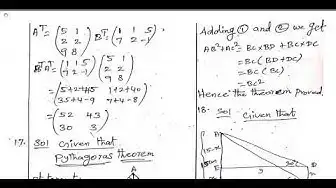 Aᵀ = (5 1
2 2
9 8) Bᵀ = (1 1 5
7 2 -1)
BᵀAᵀ = (1 1 5
7 2 -1) (5 1
2 2
9 8)
= (5+2+45 1+2+40
35+4-9 7+4-8)
= (52 43
30 3)
17. Sol Given that
Pythagoras theorem
A
Adding ① and ② we get
AB²+AC² = BC×BD + BC×DC
= BC(BD+DC)
= BC(BC)
= BC²
Hence the theorem proved.
18. Sol Given that
A